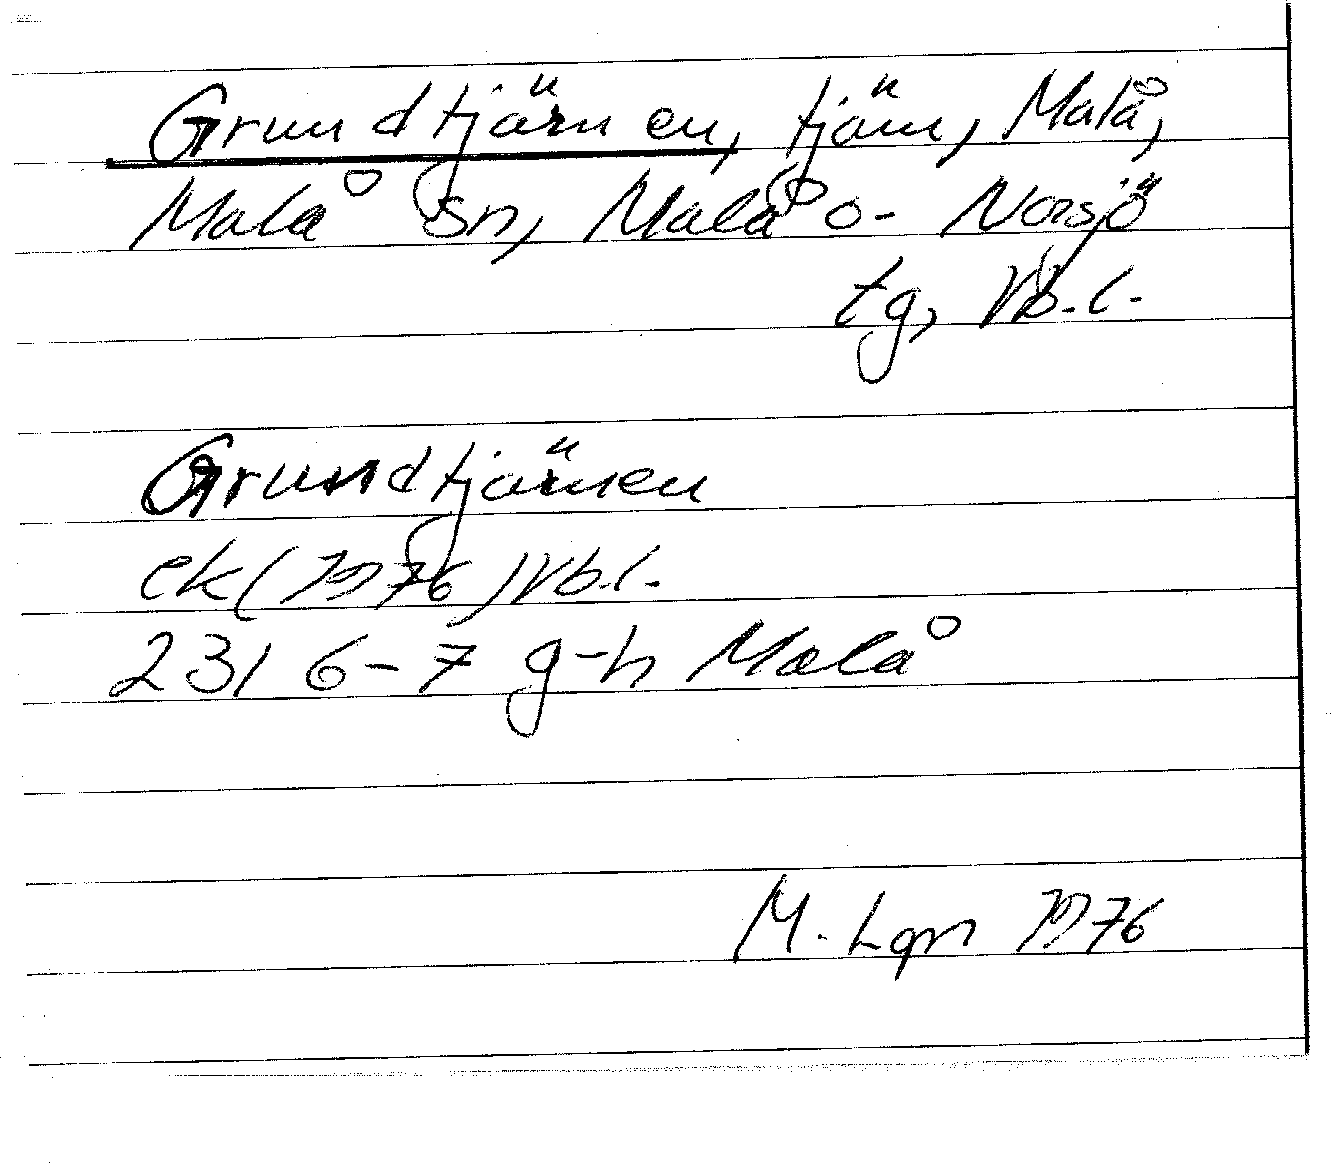 Grundtjärnen, tjärn, Malå,
Malå sn, Malå o- Norsjö
tg, Vb.l.
Grundtjärnen
ek(1976)Vb.l.
231 6-7 g-h Malå
M. Lgn 1976